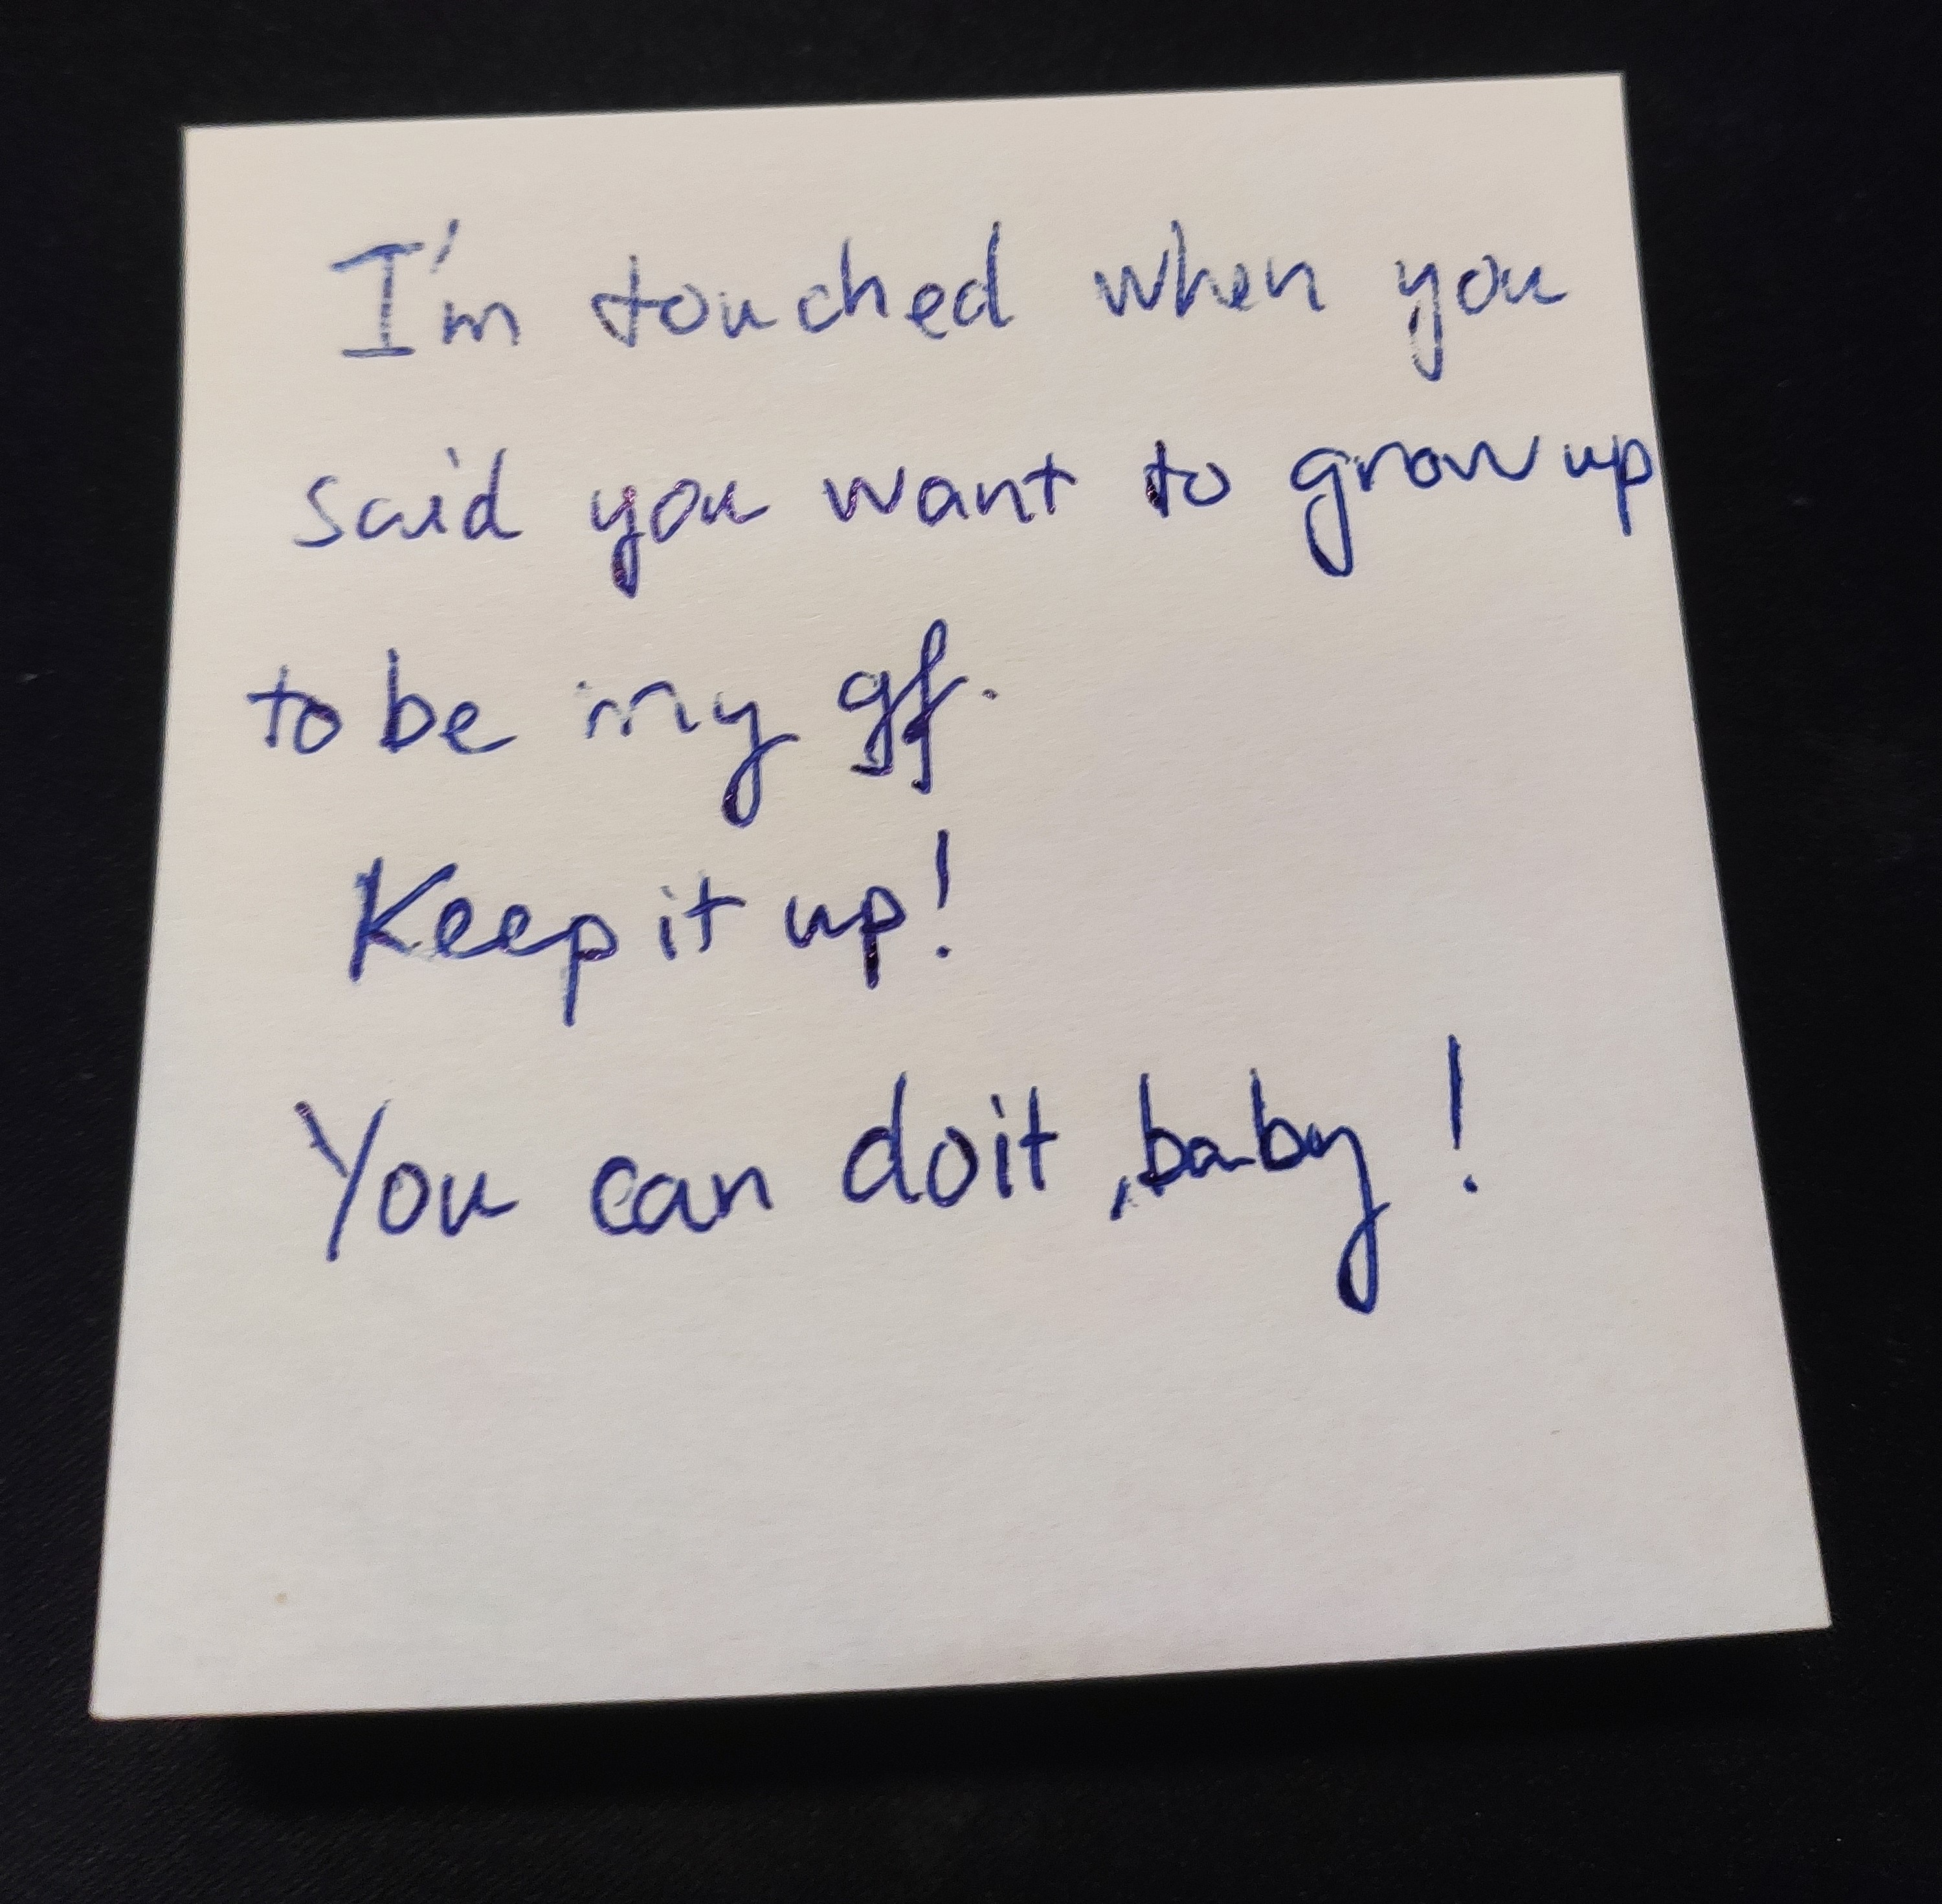 I'm touched when you
said you want to grow up
to be my gf.
Keep it up!
You can do it, baby!